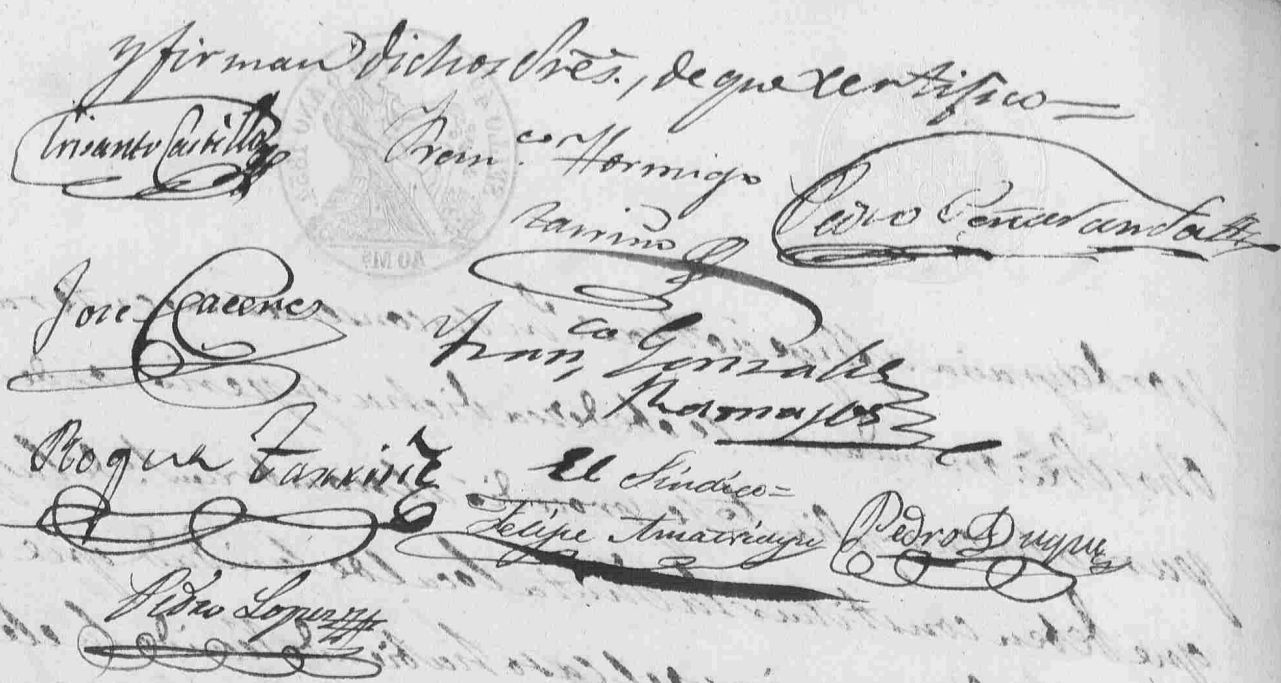 y firman dichos Sres., de que certifico=
Crisanto Castilla
Fran.co Hormigo
Tariño
Pedro Peñaranda
Jose Caceres
Fran,co Gonzalez
Roque Tariño
El Sindico=
Felipe
Pedro Duque
Pedro Lopez
40 Ms